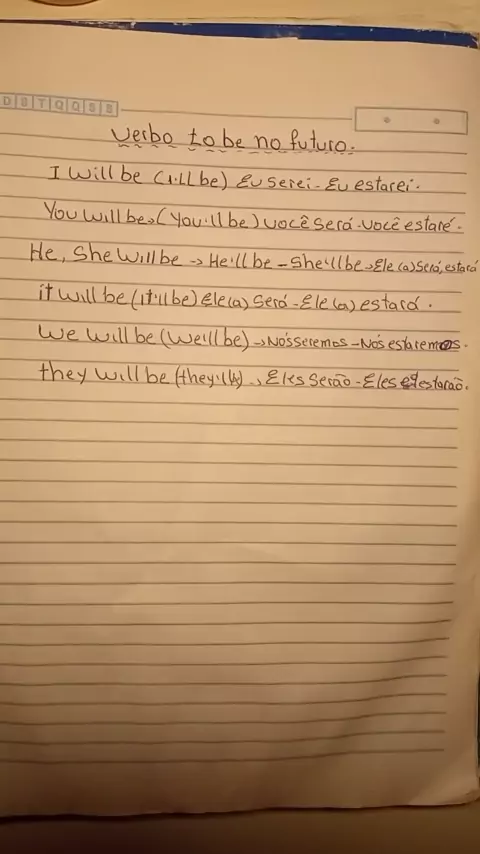 D S T Q Q S S
Verbo to be no futuro.
I will be (I'll be) Eu serei - Eu estarei.
You will be → (You'll be) você será - você estaré.
He, She will be → He'll be - She'll be → Ele (a) Será, estará
it will be (it'll be) Ele (a) Será - Ele (a) estará.
We will be (We'll be) → Nós seremos - Nós estaremos.
they will be (they'll) → Eles Serão - Eles estarão.